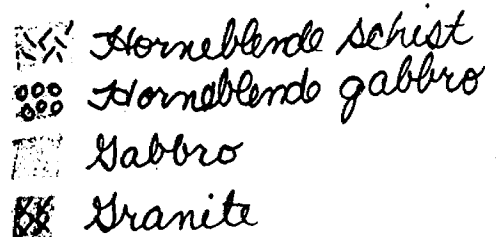 Horneblende schist
Horneblende gabbro
Gabbro
Granite